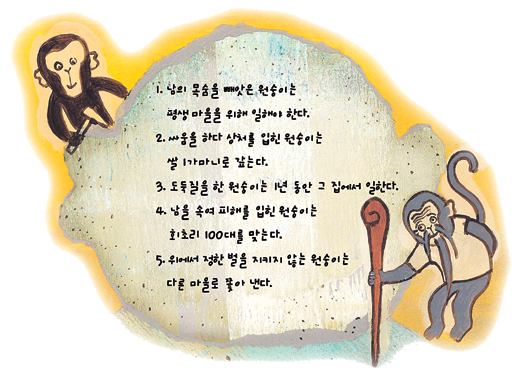 1. 남의 목숨을 빼앗은 원숭이는
평생 마을을 위해 일해야 한다.
2. 싸움을 하다 상처를 입힌 원숭이는
쌀 1가마니로 갚는다.
3. 도둑질을 한 원숭이는 1년 동안 그 집에서 일한다.
4. 남을 속여 피해를 입힌 원숭이는
회초리 100대를 맞는다.
5. 위에서 정한 벌을 지키지 않는 원숭이는
다른 마을로 쫓아 낸다.